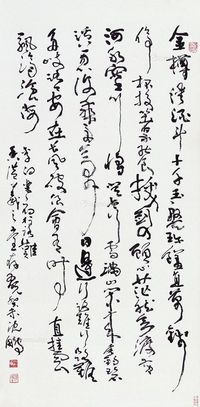 金樽清酒斗十千玉盤珍羞直萬錢
停杯投箸不能食拔劍四顧心茫然欲渡黃
河冰塞川將登太行雪滿山閒來垂釣碧
溪上忽復乘舟夢日邊行路難行路難
多歧路今安在長風破浪會有時直挂雲
帆濟滄海
李白行路難
沈鵬